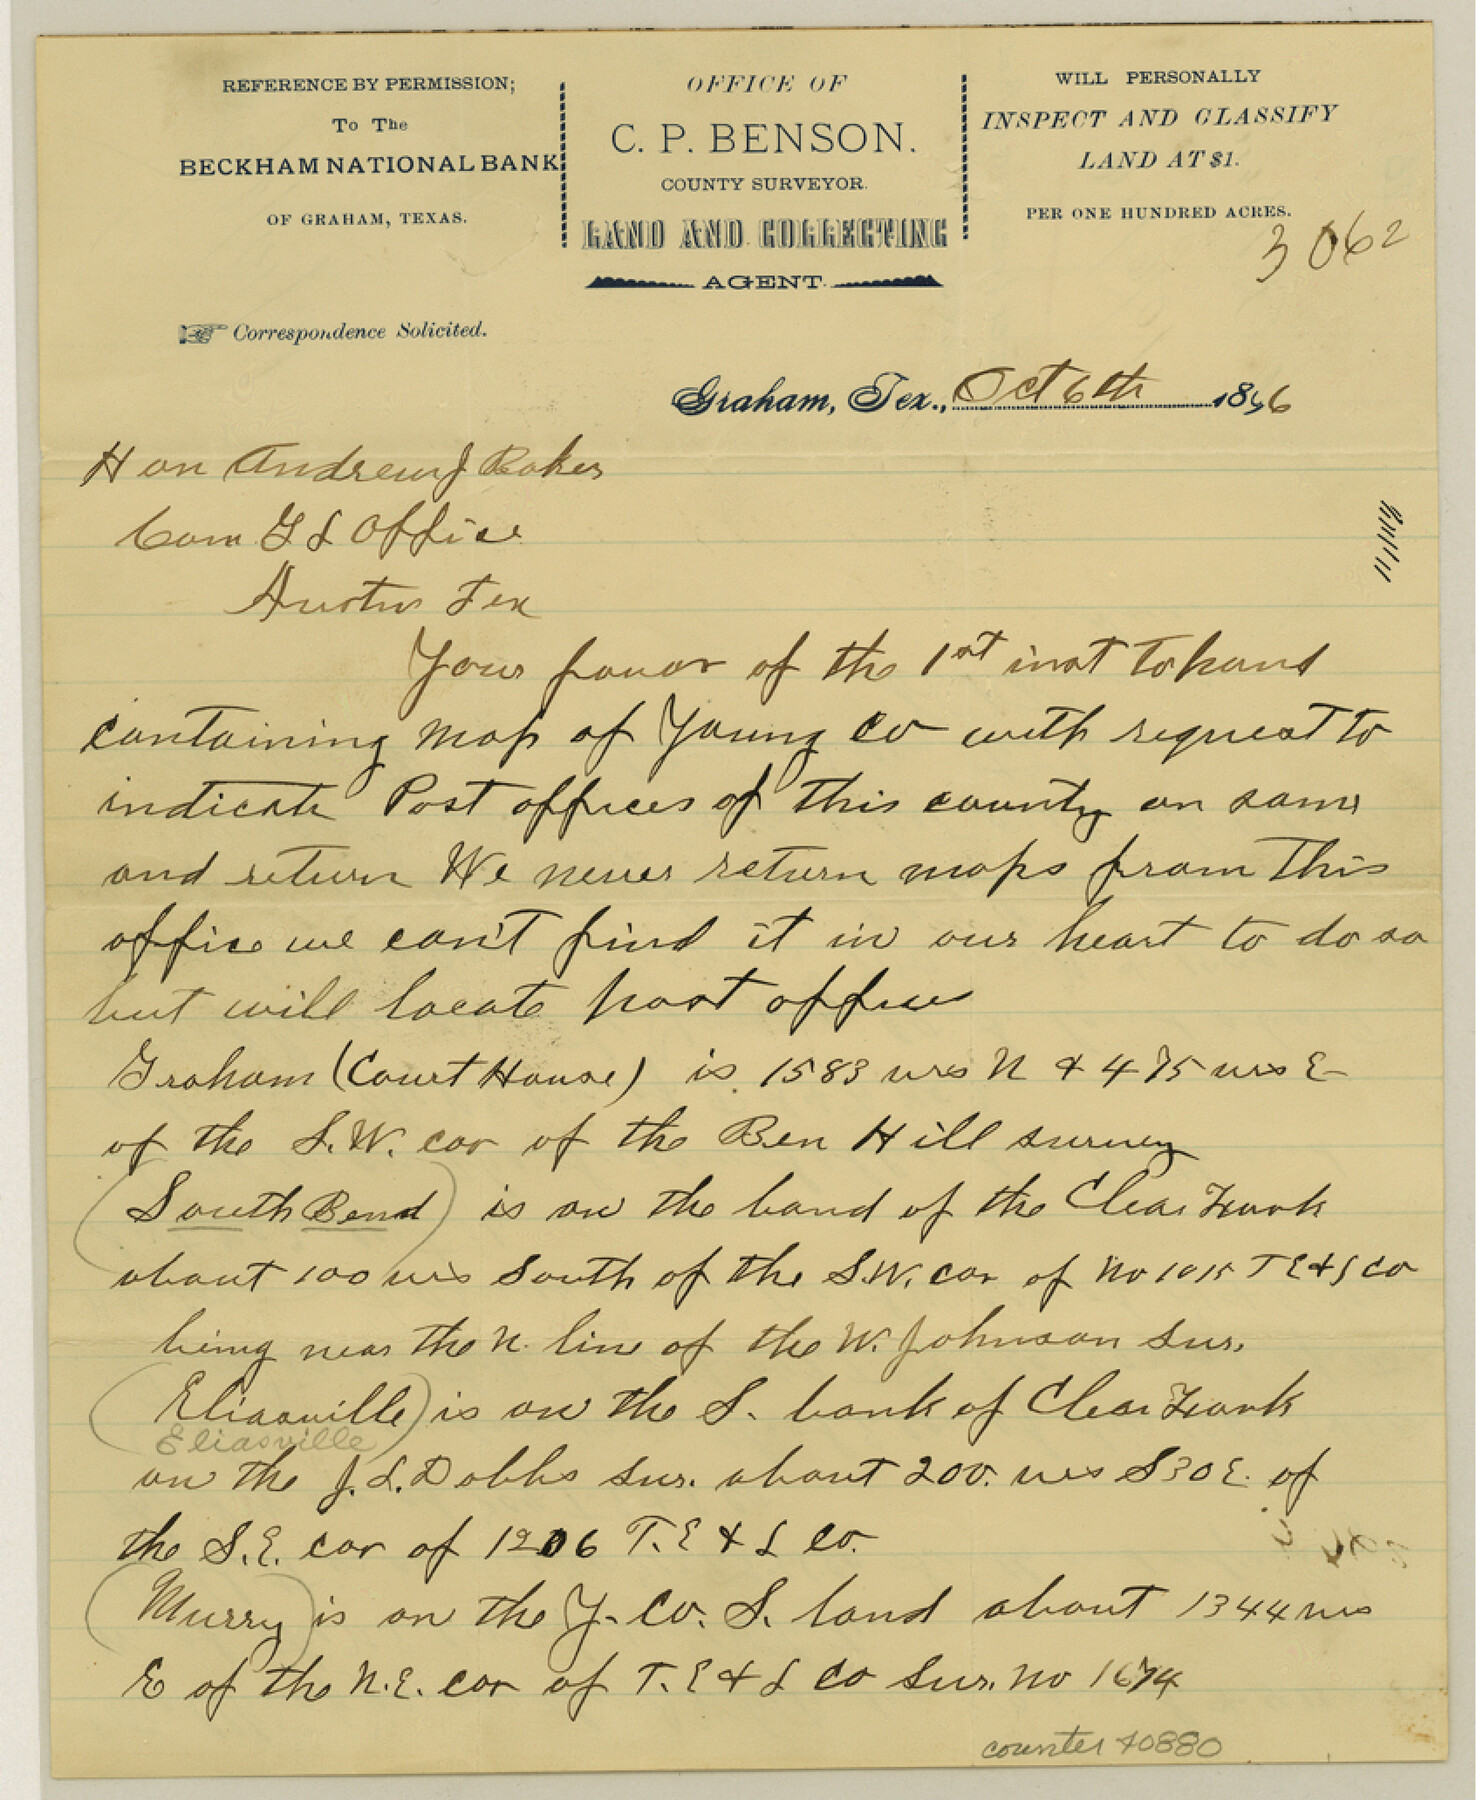 REFERENCE BY PERMISSION;
To The
BECKHAM NATIONAL BANK
OF GRAHAM, TEXAS.
Correspondence Solicited.
OFFICE OF
C. P. BENSON.
COUNTY SURVEYOR.
LAND AND COLLECTING
AGENT.
WILL PERSONALLY
INSPECT AND CLASSIFY
LAND AT $1.
PER ONE HUNDRED ACRES.
3062
Graham, Tex., Oct 6th 1896
Hon Andrew J Baker
Com G L Office
Austin Tex
Your favor of the 1st inst to hand
containing map of Young Co with request to
indicate Post offices of this county on same
and return We never return maps from this
office we can't find it in our heart to do so
but will locate post offices
Graham (Court House) is 1583 vrs N & 475 vrs E
of the S.W. cor of the Ben Hill survey
(South Bend) is on the bend of the Clear Fork
about 100 vrs South of the S.W. cor of No 1015 T E & L Co
being near the N. line of the W. Johnson Sur.
(Eliasville) is on the S. bank of Clear Fork
Eliasville
on the J. L. Dobbs Sur. about 200. vrs S 30 E. of
the S.E. cor of 1206 T. E & L Co.
(Murry) is on the Y. Co. S. land about 1344 vrs
E of the N.E. cor of T. E & L Co Sur. No 1674
counter 40880